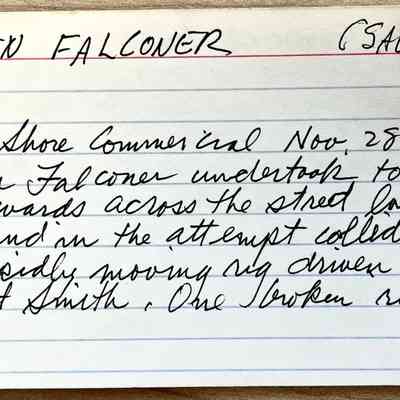 EN FALCONER (SAU
Shore Commercial Nov. 28
n Falconer undertook to
wards across the street la
and in the attempt collid
pidly moving rig driven
t Smith. One broken ri